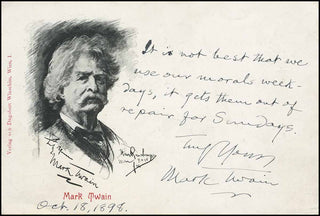 It is not best that we
use our morals week-
days, it gets them out of
repair for Sundays.
Truly Yours
Mark Twain
Mark Twain
Mark Twain
Oct. 18, 1898.
Wien, I.